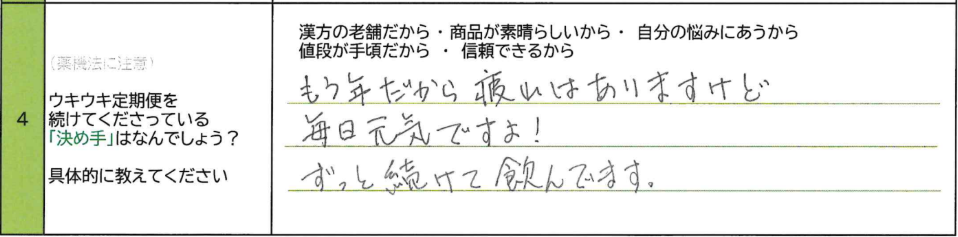 漢方の老舗だから・商品が素晴らしいから・ 自分の悩みにあうから
値段が手頃だから ・ 信頼できるから
(薬機法に注意)
4
ウキウキ定期便を
続けてくださっている
「決め手」はなんでしょう？
具体的に教えてください
もう年だから疲れはありますけど
毎日元気ですよ！
ずっと続けて飲んでます。